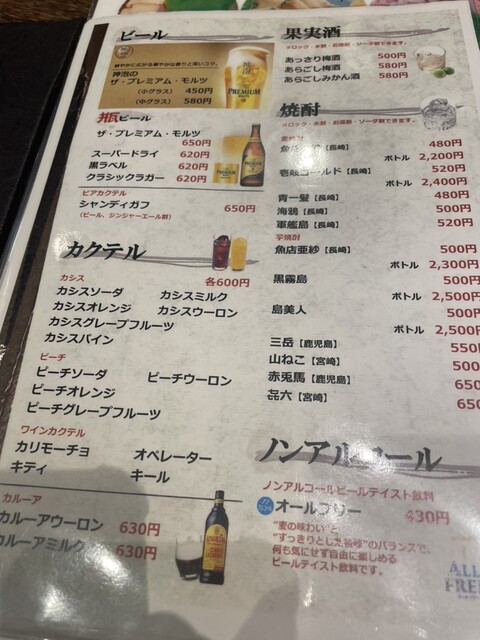 ビール
神泡の
ザ・プレミアム・モルツ
(小グラス) 450円
(中グラス) 580円
瓶ビール
ザ・プレミアム・モルツ
650円
スーパードライ 620円
黒ラベル 620円
クラシックラガー 620円
ビアカクテル
シャンディガフ 650円
(ビール、ジンジャーエール割)
カクテル
各600円
カシス
カシスソーダ カシスミルク
カシスオレンジ カシスウーロン
カシスグレープフルーツ
カシスパイン
ピーチ
ピーチソーダ ピーチウーロン
ピーチオレンジ
ピーチグレープフルーツ
ワインカクテル
カリモーチョ オペレーター
キティ キール
カルーア
カルーアウーロン 630円
カルーアミルク 630円
果実酒
※ロック・水割・お湯割・ソーダ割できます。
あっさり梅酒 500円
あらごし梅酒 580円
あらごしみかん酒 580円
焼酎
※ロック・水割・お湯割・ソーダ割できます。
麦焼酎
【長崎】 480円
ボトル 2,200円
壱岐ゴールド【長崎】 520円
ボトル 2,400円
青一髪【長崎】 480円
海鴉【長崎】 500円
軍艦島【長崎】 520円
芋焼酎
魚店亜紗【長崎】 500円
ボトル 2,300円
黒霧島 500円
ボトル 2,500円
島美人 500円
ボトル 2,500円
三岳【鹿児島】 550
山ねこ【宮崎】 500
赤兎馬【鹿児島】 650
㐂六【宮崎】 650
ノンアルコール
ノンアルコールビールテイスト飲料
オールフリー 430円
"麦の味わい"と
"すっきりとした後味"のバランスで、
何も気にせず自由に楽しめる
ビールテイスト飲料です。
ALL
FREE